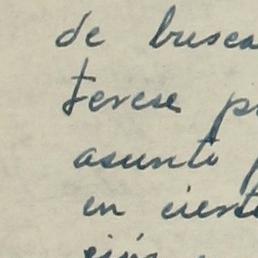 de busca
terese p
asunto p
en cierto